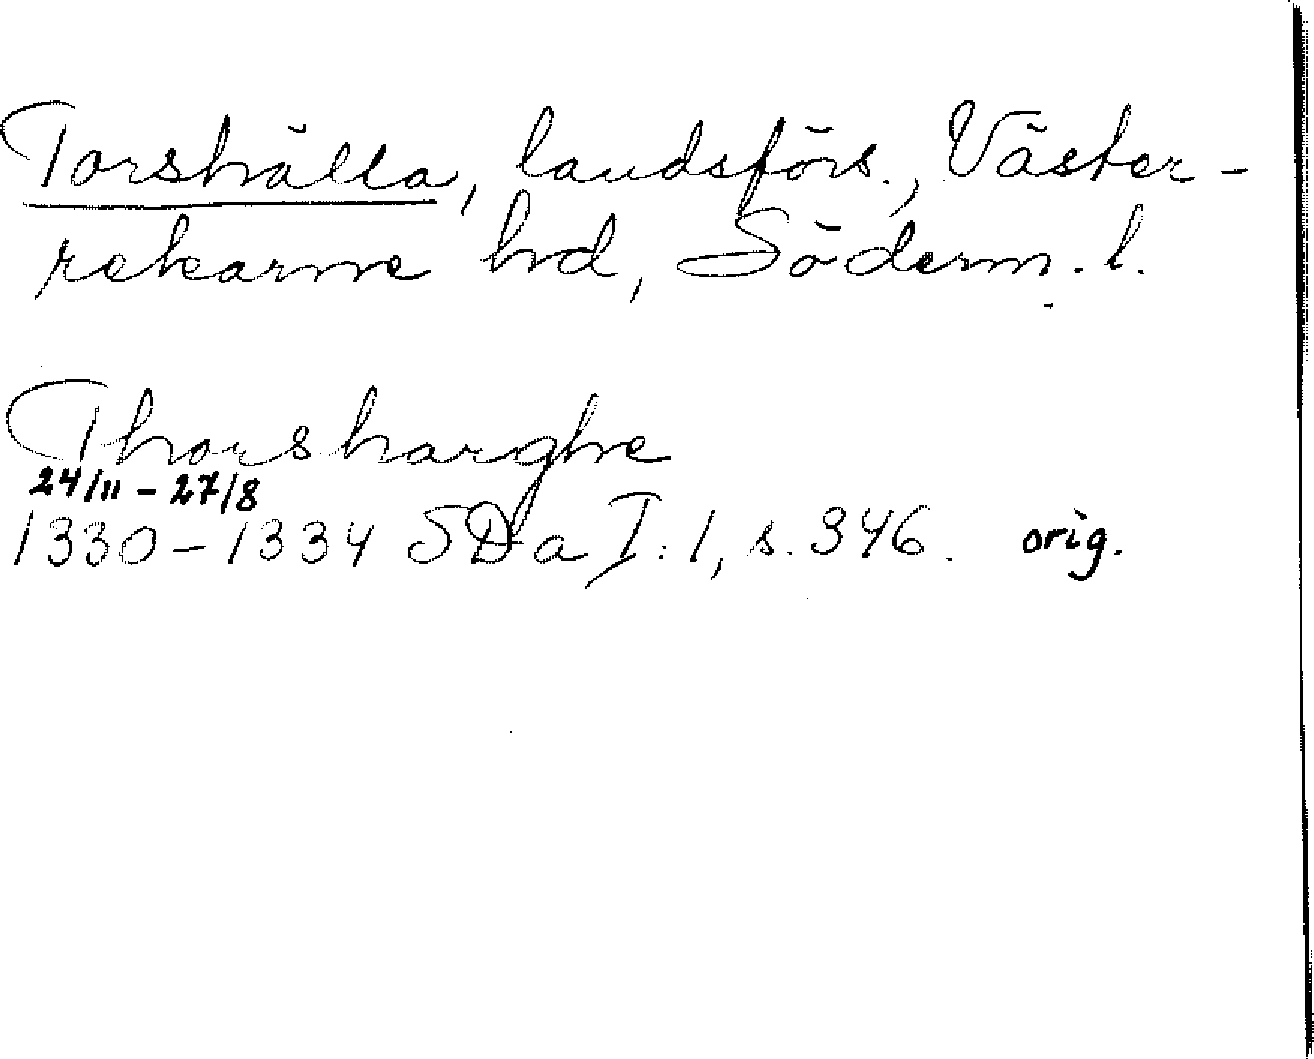 Torshälla, landsförs., Väster-
rekarne hd, Söderm. l.
Thorsharghe
24/11 - 27/8
1330-1334 SDa I:1, s. 346. orig.